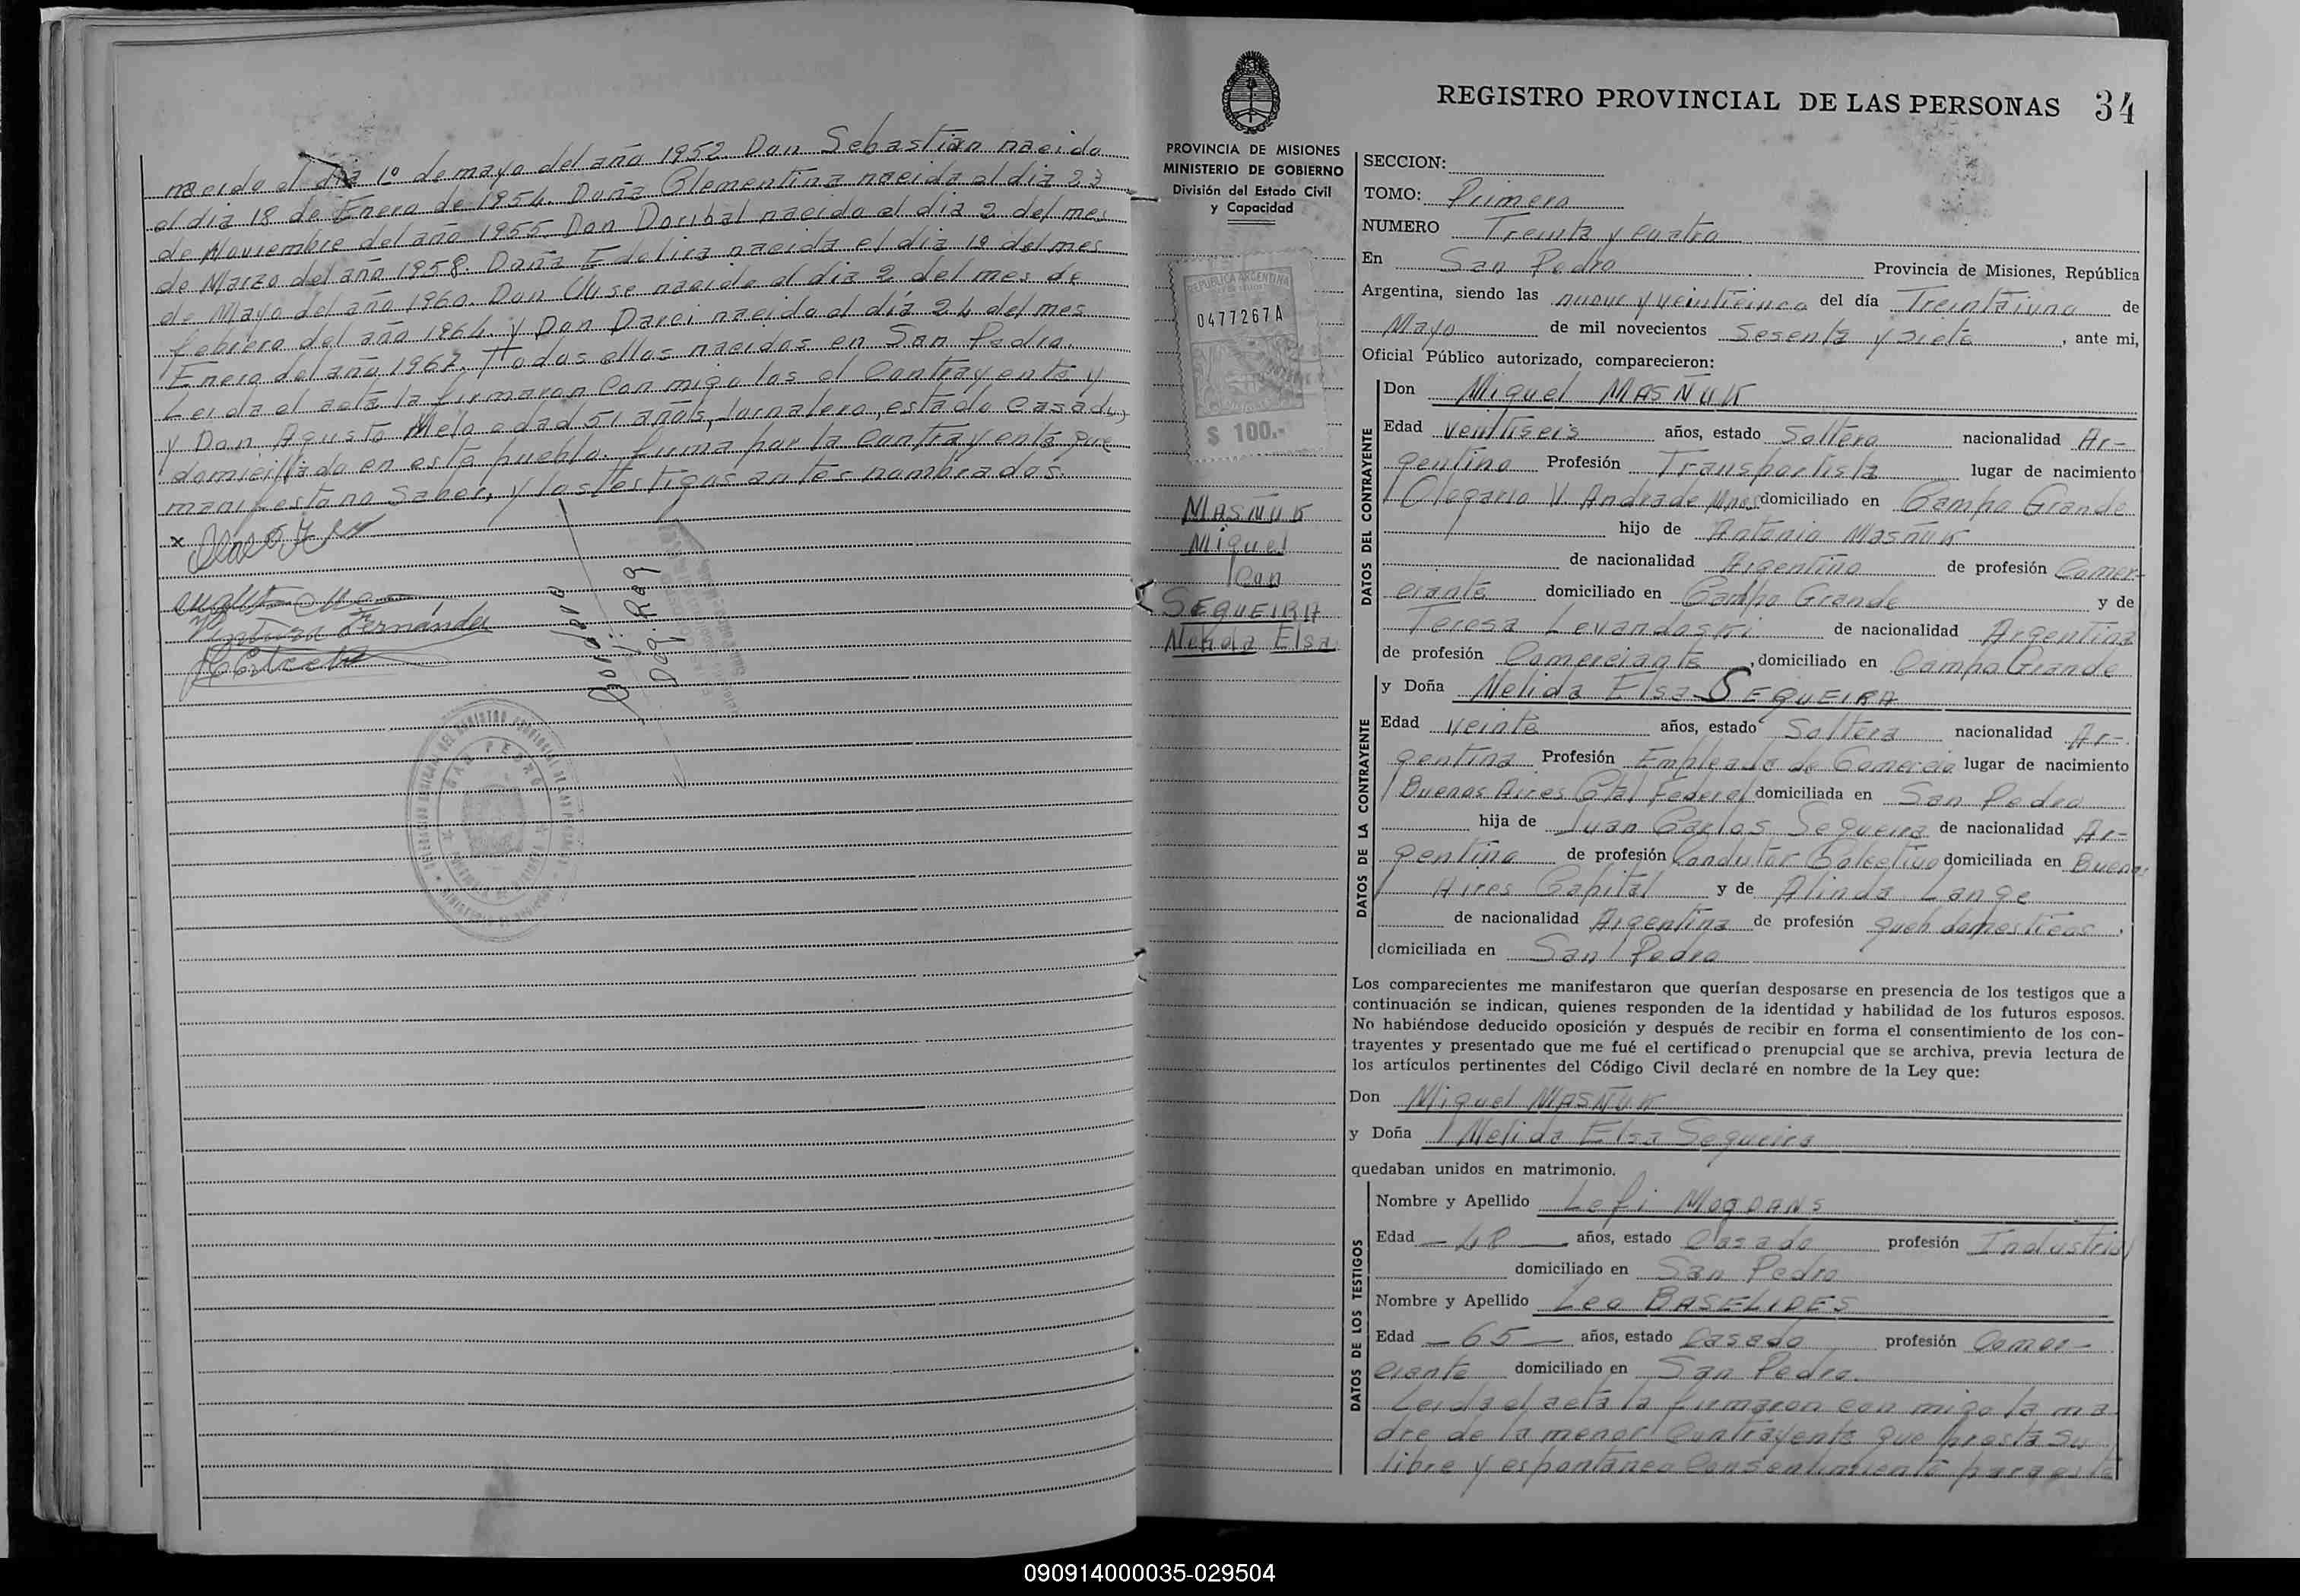 nacido el día 1º de mayo del año 1952. Don Sebastián nacido
el día 18 de Enero de 1954. Doña Clementina nacida el día 23
de Noviembre del año 1955. Don Doribal nacido el día 2 del mes
de Marzo del año 1958. Doña Edelira nacida el día 1º del mes
de Mayo del año 1960. Don nacido el día 2 del mes de
febrero del año 1964 y Don Darci nacido el día 24 del mes
Enero del año 1967. Todos ellos nacidos en San Pedro.
Leida el acta la firmaron con migo los el Contrayente y
y Don Agusto Melo edad 51 años, Jornalero, estado casado,
domicilíado en este pueblo. firma por la contrayente que
manifestó no saber, y los testigos antes nombrados.
x
Fernández
REGISTRO PROVINCIAL DE LAS PERSONAS 34
PROVINCIA DE MISIONES
MINISTERIO DE GOBIERNO
División del Estado Civil
y Capacidad
REPUBLICA ARGENTINA
0477267A
$ 100.-
MASÑUK
Miguel
Con
SEQUEIRA
Nelida Elsa
SECCION:
TOMO: Primero
NUMERO Treinta y cuatro
En San Pedro Provincia de Misiones, República
Argentina, siendo las nueve y veinticinco del día Treintaiuno de
Mayo de mil novecientos Sesenta y siete, ante mi,
Oficial Público autorizado, comparecieron:
DATOS DEL CONTRAYENTE
Don Miguel MASÑUK
Edad veintiseis años, estado Soltero nacionalidad Ar-
gentino Profesión Transportista lugar de nacimiento
Olegario V. Andrade Mnes domiciliado en Campo Grande
hijo de Antonio Masñuk
de nacionalidad Argentino de profesión Comer-
ciante domiciliado en Campo Grande y de
Teresa Levandoski de nacionalidad Argentina
de profesión Comerciante, domiciliado en Campo Grande
DATOS DE LA CONTRAYENTE
y Doña Nelida Elsa SEQUEIRA
Edad veinte años, estado Soltera nacionalidad Ar-
gentina Profesión Empleada de Comercio lugar de nacimiento
Buenos Aires Cptal Federal domiciliada en San Pedro
hija de Juan Carlos Sequeira de nacionalidad Ar-
gentino de profesión Condutor Colectivo domiciliada en Buenos
Aires Capital y de Alinda Lange
de nacionalidad Argentina de profesión queh domesticos.
domiciliada en San Pedro
Los comparecientes me manifestaron que querían desposarse en presencia de los testigos que a
continuación se indican, quienes responden de la identidad y habilidad de los futuros esposos.
No habiéndose deducido oposición y después de recibir en forma el consentimiento de los con-
trayentes y presentado que me fué el certificado prenupcial que se archiva, previa lectura de
los artículos pertinentes del Código Civil declaré en nombre de la Ley que:
Don Miguel MASÑUK
y Doña Nelida Elsa Sequeira
quedaban unidos en matrimonio.
DATOS DE LOS TESTIGOS
Nombre y Apellido Lefi MOGDANS
Edad — 48 — años, estado Casado profesión Industrial
domiciliado en San Pedro
Nombre y Apellido Leo BASELIDES
Edad — 65 — años, estado Casado profesión Comer-
ciante domiciliado en San Pedro.
Leida el acta la firmaron con migo la ma-
dre de la menor Contrayente que presta su
libre y espontáneo Consentimiento para este
090914000035-029504